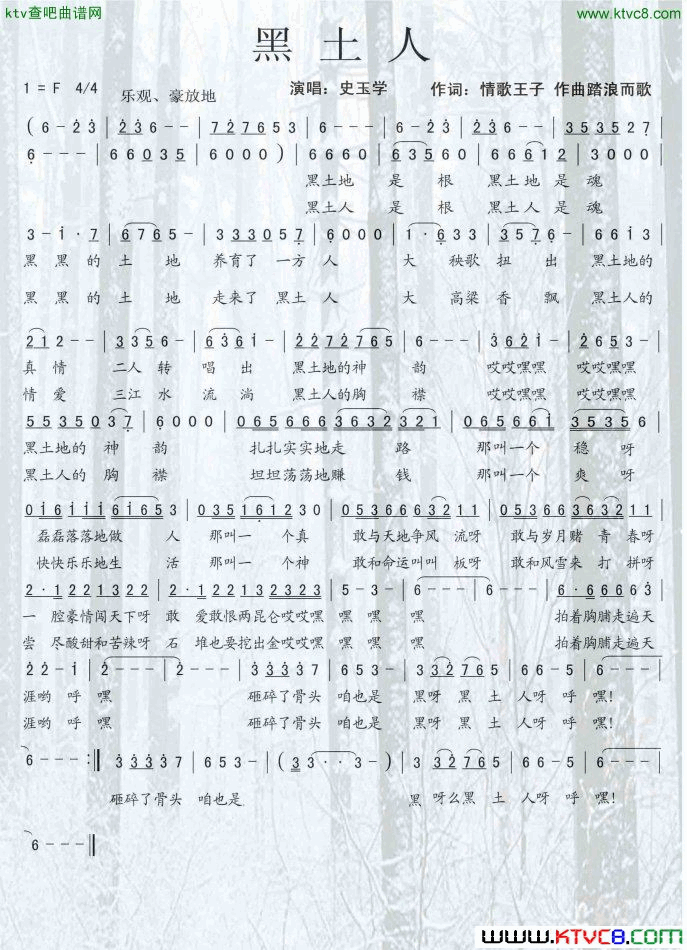 ktv查吧曲谱网
www.ktvc8.com
黑 土 人
1 = F 4/4
乐观、豪放地
演唱：史玉学
作词：情歌王子 作曲踏浪而歌
( 6 - 2 3 | 2 3 6 - - | 7 2 7 6 5 3 | 6 - - - | 6 - 2 3 | 2 3 6 - - | 3 5 3 5 2 7 |
6 - - - | 6 6 0 3 5 | 6 0 0 0 ) | 6 6 6 0 | 6 3 5 6 0 | 6 6 6 1 2 | 3 0 0 0 |
黑土地 是 根 黑土地 是 魂
黑土人 是 根 黑土人 是 魂
3 - 1 · 7 | 6 7 6 5 - | 3 3 3 0 5 7 | 6 0 0 0 | 1 · 6 3 3 | 3 5 7 6 - | 6 6 1 3 |
黑 黑 的 土 地 养育了 一方 人 大 秧歌 扭 出 黑土地的
黑 黑 的 土 地 走来了 黑土 人 大 高粱 香 飘 黑土人的
2 1 2 - - | 3 3 5 6 - | 6 3 6 1 - | 2 7 2 7 6 5 | 6 - - - | 3 6 2 1 - | 2 6 5 3 - |
真 情 二人 转 唱 出 黑土地的神 韵 哎哎嘿嘿 哎哎嘿嘿
情 爱 三江 水 流 淌 黑土人的胸 襟 哎哎嘿嘿 哎哎嘿嘿
5 5 3 5 0 3 7 | 6 0 0 0 | 0 6 5 6 6 6 3 6 3 2 3 2 1 | 0 6 5 6 6 1 3 5 3 5 6 |
黑土地的 神 韵 扎扎实实地走 路 那叫一个 稳 呀
黑土人的 胸 襟 坦坦荡荡地赚 钱 那叫一个 爽 呀
0 1 6 1 1 1 6 1 6 5 3 | 0 3 5 1 6 1 2 3 0 | 0 5 3 6 6 6 3 2 1 1 | 0 5 3 6 6 6 3 2 3 3 |
磊磊落落地做 人 那叫一 个真 敢与天地争风 流呀 敢与岁月赌 青 春呀
快快乐乐地生 活 那叫一 个神 敢和命运叫叫 板呀 敢和风雪来 打 拼呀
2 · 1 2 2 1 3 3 2 | 2 · 1 2 2 1 3 2 3 2 3 | 5 - 3 - | 6 - - - | 6 - - - | 6 · 6 6 6 6 3 |
一 腔豪情闯天下呀 敢 爱敢恨两昆仑哎哎嘿 嘿 嘿 嘿 拍着胸脯走遍天
尝 尽酸甜和苦辣呀 石 堆也要挖出金哎哎嘿 嘿 嘿 嘿 拍着胸脯走遍天
2 2 - 1 | 2 - - - | 2 - - - | 3 3 3 3 7 | 6 5 3 - | 3 3 2 7 6 5 | 6 6 - 5 | 6 - - - |
涯哟 呼 嘿 砸碎了骨头 咱也是 黑呀 黑 土 人呀 呼 嘿!
涯哟 呼 嘿 砸碎了骨头 咱也是 黑呀 黑 土 人呀 呼 嘿!
6 - - - :‖ 3 3 3 3 7 | 6 5 3 - | ( 3 3 · · 3 - ) | 3 3 2 7 6 5 | 6 6 - 5 | 6 - - - |
砸碎了骨头 咱也是 黑 呀么黑 土 人呀 呼 嘿!
6 - - - ‖
www.KTVC8.com